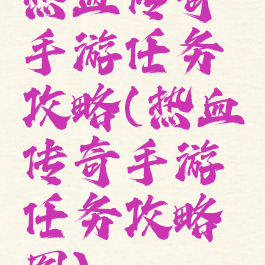 热血传奇
手游任务
攻略(热血
传奇手游
任务攻略
图)